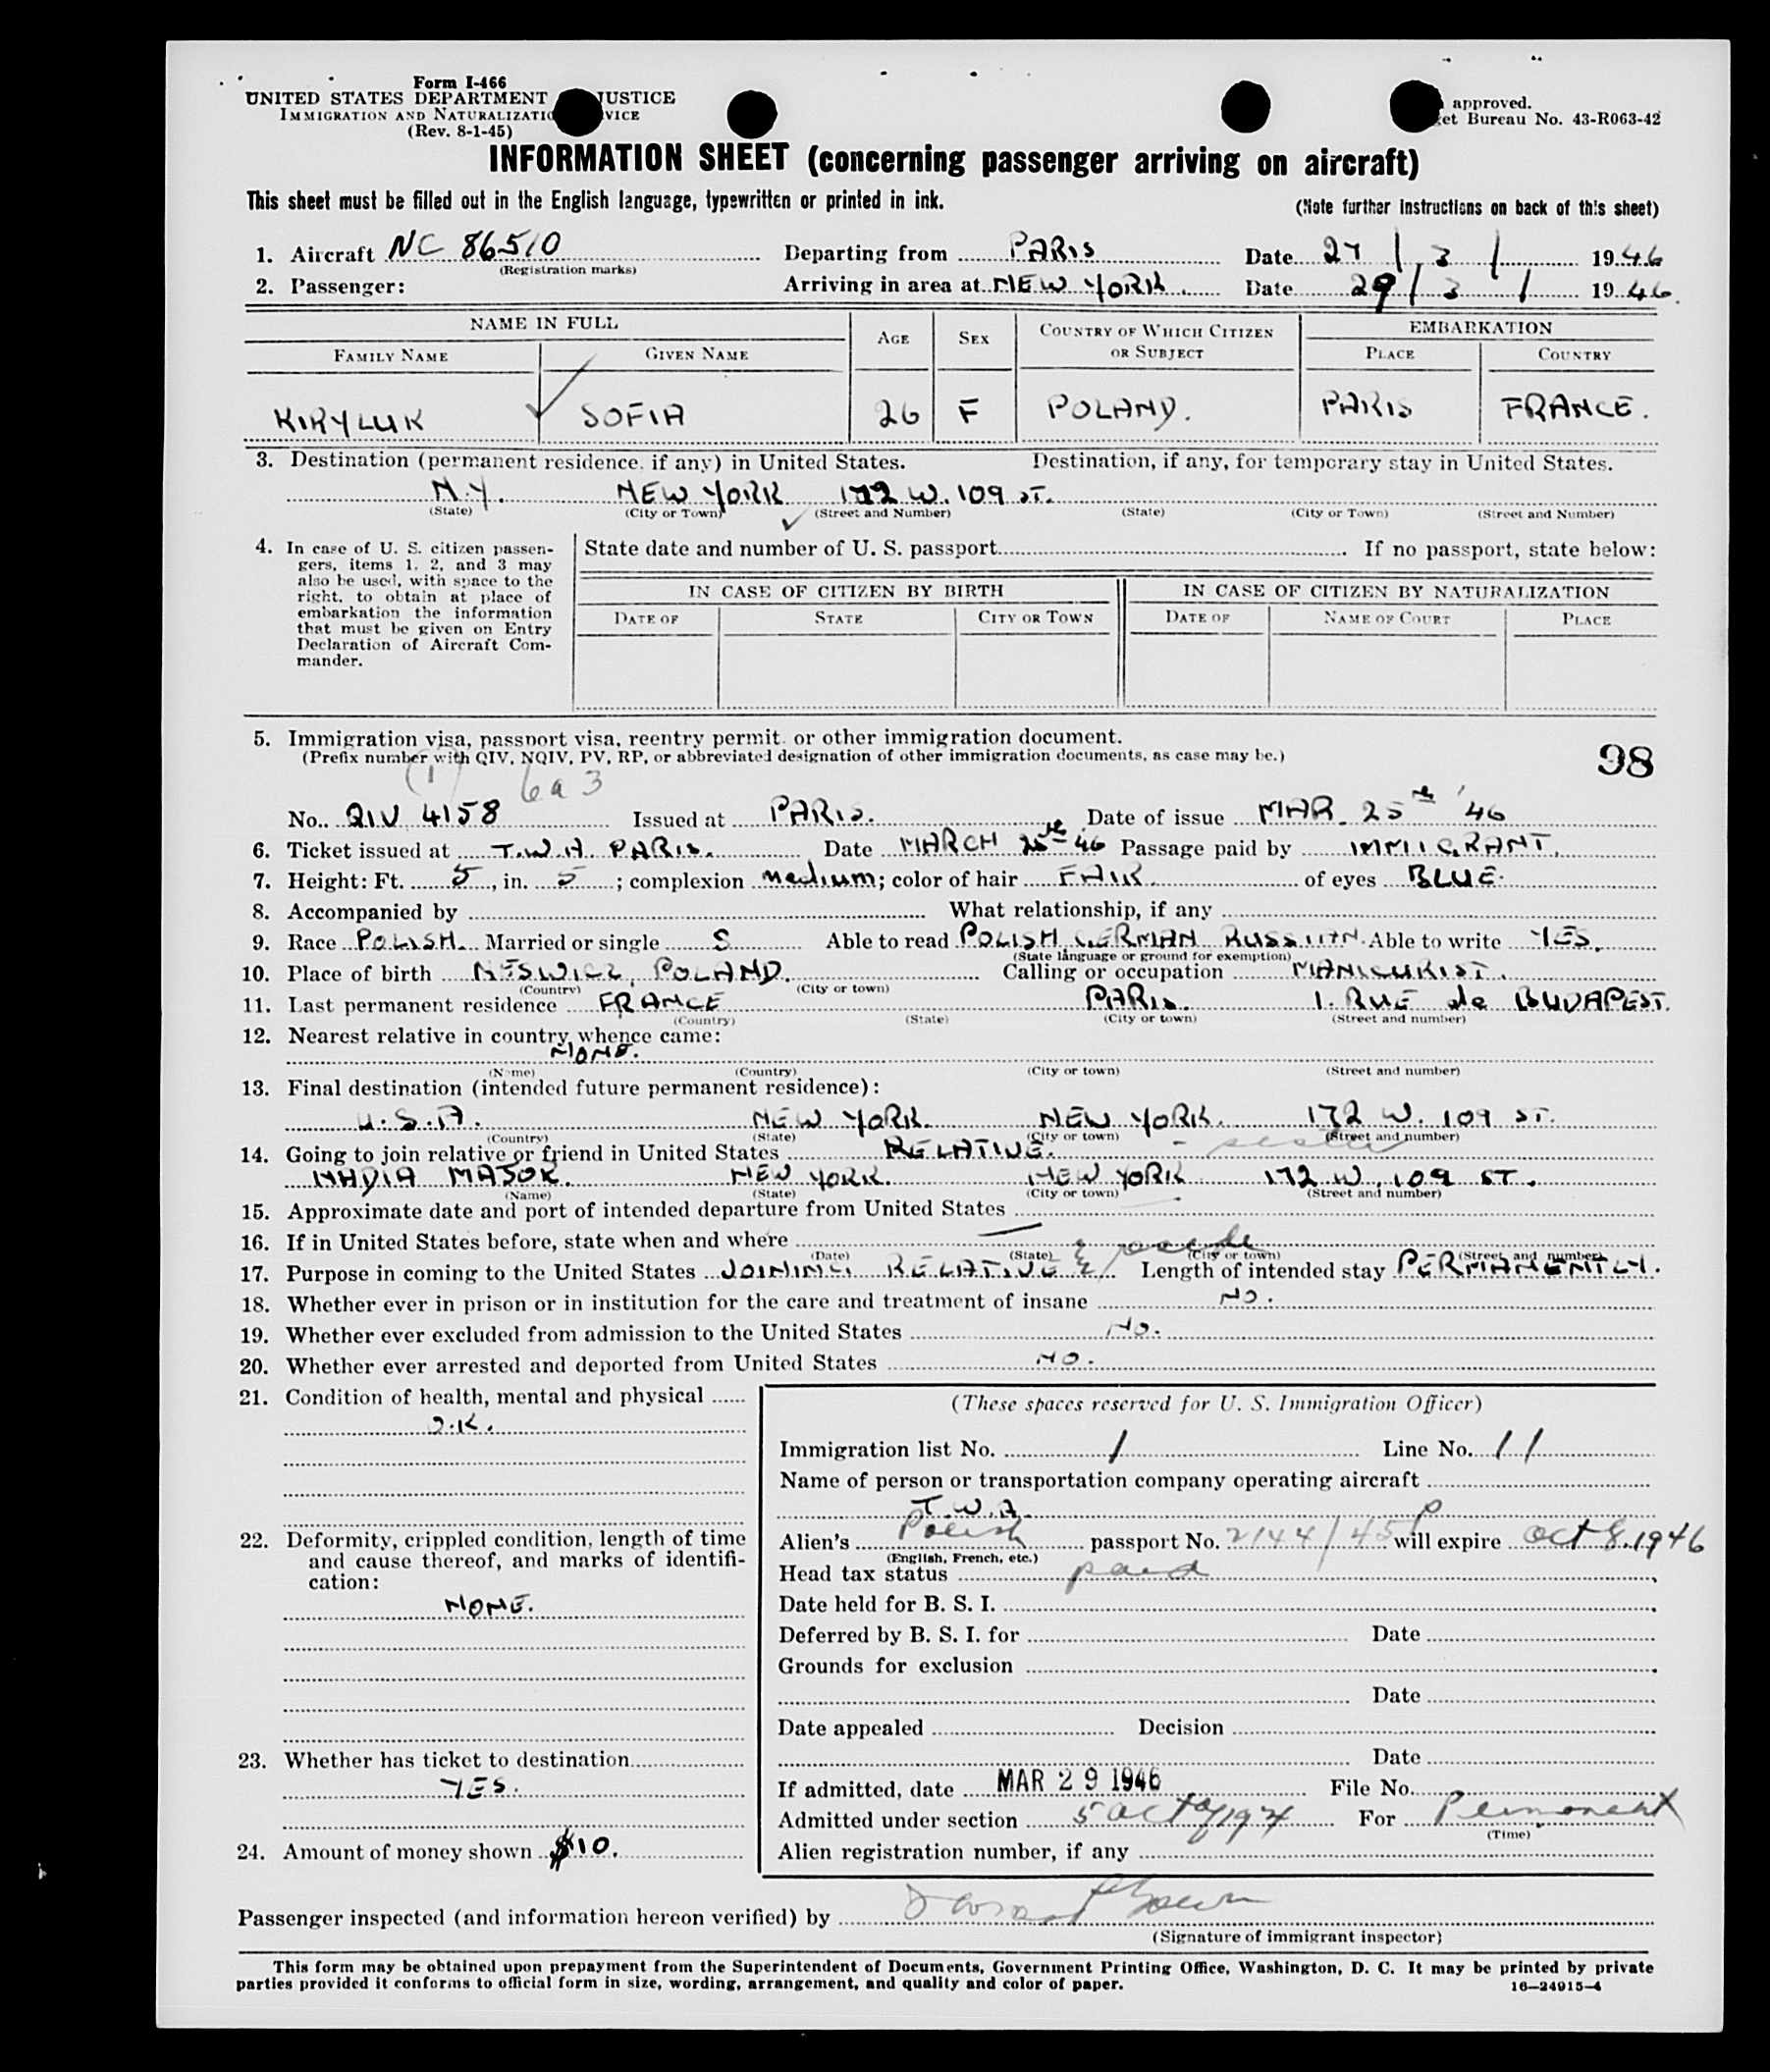 Form I-466
UNITED STATES DEPARTMENT JUSTICE
IMMIGRATION AND NATURALIZATIO VICE
(Rev. 8-1-45)
approved.
et Bureau No. 43-R063-42
INFORMATION SHEET (concerning passenger arriving on aircraft)
This sheet must be filled out in the English language, typewritten or printed in ink.
(Note further instructions on back of this sheet)
1. Aircraft NC 86510 Departing from PARIS Date 27/3/1946
(Registration marks)
2. Passenger: Arriving in area at NEW YORK. Date 29/3/1946.
NAME IN FULL AGE SEX COUNTRY OF WHICH CITIZEN OR SUBJECT EMBARKATION
FAMILY NAME GIVEN NAME PLACE COUNTRY
KIRYLUK SOFIA 26 F POLAND. PARIS FRANCE.
3. Destination (permanent residence, if any) in United States. Destination, if any, for temporary stay in United States.
N.Y. NEW YORK 172 W. 109 ST.
(State) (City or Town) (Street and Number) (State) (City or Town) (Street and Number)
4. In case of U. S. citizen passengers, items 1, 2, and 3 may also be used, with space to the right, to obtain at place of embarkation the information that must be given on Entry Declaration of Aircraft Commander.
State date and number of U. S. passport If no passport, state below:
IN CASE OF CITIZEN BY BIRTH IN CASE OF CITIZEN BY NATURALIZATION
DATE OF STATE CITY OR TOWN DATE OF NAME OF COURT PLACE
5. Immigration visa, passport visa, reentry permit or other immigration document.
(Prefix number with QIV, NQIV, PV, RP, or abbreviated designation of other immigration documents, as case may be.)
98
(1) 6a3
No. QIV 4158 Issued at PARIS. Date of issue MAR. 25th '46
6. Ticket issued at T.W.A. PARIS. Date MARCH 25th 46 Passage paid by IMMIGRANT.
7. Height: Ft. 5, in. 5; complexion medium; color of hair FAIR of eyes BLUE.
8. Accompanied by What relationship, if any
9. Race POLISH Married or single S Able to read POLISH GERMAN RUSSIAN Able to write YES.
(State language or ground for exemption)
10. Place of birth NESWIEZ, POLAND. Calling or occupation MANICURIST.
(Country) (City or town)
11. Last permanent residence FRANCE PARIS. 1. RUE de BUDAPEST.
(Country) (State) (City or town) (Street and number)
12. Nearest relative in country whence came:
NONE.
(Name) (Country) (City or town) (Street and number)
13. Final destination (intended future permanent residence):
U.S.A. NEW YORK. NEW YORK. 172 W. 109 ST.
(Country) (State) (City or town) (Street and number)
14. Going to join relative or friend in United States RELATIVE. - sister
NADIA MAJOR. NEW YORK. NEW YORK 172 W. 109 ST.
(Name) (State) (City or town) (Street and number)
15. Approximate date and port of intended departure from United States
16. If in United States before, state when and where
(Date) (State) (City or town) (Street and number)
17. Purpose in coming to the United States JOINING RELATIVE & reside Length of intended stay PERMANENTLY.
18. Whether ever in prison or in institution for the care and treatment of insane NO.
19. Whether ever excluded from admission to the United States NO.
20. Whether ever arrested and deported from United States NO.
21. Condition of health, mental and physical
O.K.
22. Deformity, crippled condition, length of time and cause thereof, and marks of identification:
NONE.
23. Whether has ticket to destination
YES.
24. Amount of money shown $10.
(These spaces reserved for U. S. Immigration Officer)
Immigration list No. 1 Line No. 11
Name of person or transportation company operating aircraft
T.W.A.
Alien's Polish passport No. 2144/45P will expire Oct 8.1946
(English, French, etc.)
Head tax status paid
Date held for B. S. I.
Deferred by B. S. I. for Date
Grounds for exclusion
Date
Date appealed Decision
Date
If admitted, date MAR 29 1946 File No.
Admitted under section 5 act of 1924 For Permanent
(Time)
Alien registration number, if any
Passenger inspected (and information hereon verified) by
(Signature of immigrant inspector)
This form may be obtained upon prepayment from the Superintendent of Documents, Government Printing Office, Washington, D. C. It may be printed by private
parties provided it conforms to official form in size, wording, arrangement, and quality and color of paper.
16—24915-4